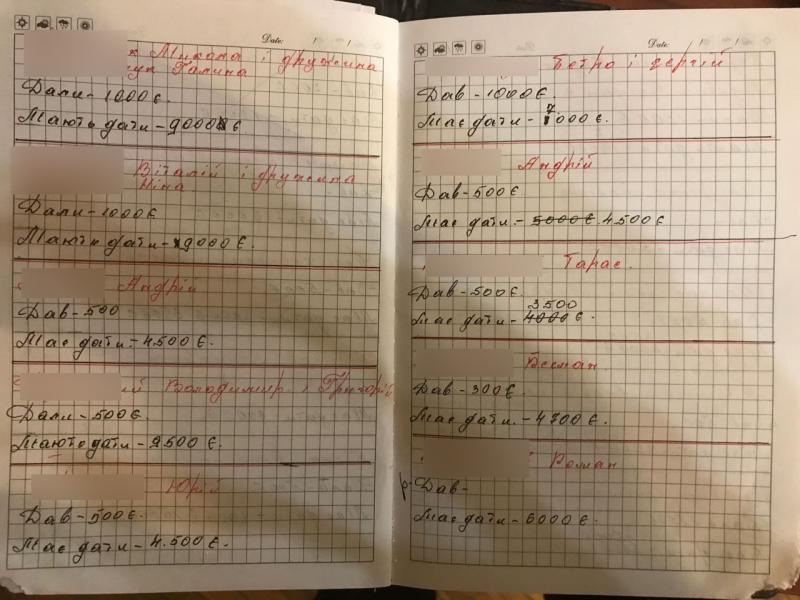 Date:
Микола і дружина
Галина
Дали - 1000 €.
Мають дати - 9000 €
Віталій і дружина
Ніна
Дали - 1000 €
Мають дати - 9000 €.
Андрій
Дав - 500
Має дати - 4500 €.
ий Володимир і Григорій
Дали - 500 €.
Мають дати - 9500 €.
Юрій
Дав - 500 €.
Має дати - 4.500 €.
Date:
Петро і Сергій
Дав - 1000 €.
Має дати - 7000 €.
Андрій
Дав - 500 €
Має дати - 5000 €. 4500 €
Тарас.
Дав - 500 €.
3500
Має дати - 4000 €.
Роман.
Дав - 300 €.
Має дати. - 4700 €.
й Роман
р. Дав -
Має дати - 6000 €.